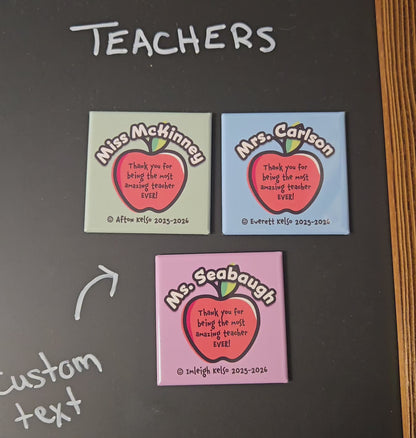 TEACHERS
Miss McKinney
Thank you for
being the most
amazing teacher
EVER!
☺ Afton Kelso 2025-2026
Mrs. Carlson
Thank you for
being the most
amazing teacher
EVER!
☺ Everett Kelso 2025-2026
Ms. Seabaugh
Thank you for
being the most
amazing teacher
EVER!
☺ Imleigh Kelso 2025-2026
Custom
text